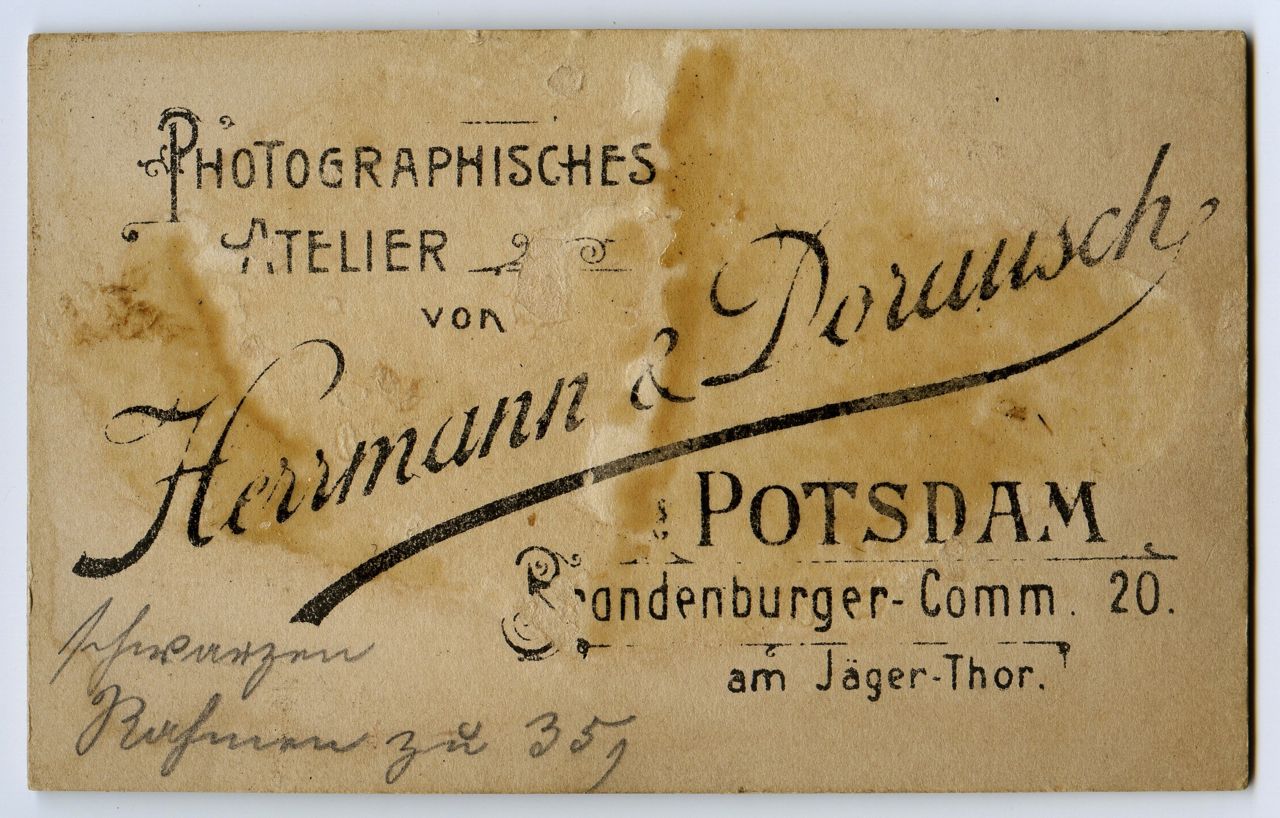 PHOTOGRAPHISCHES
ATELIER
von
Herrmann & Dorausch
POTSDAM
Brandenburger-Comm. 20.
am Jäger-Thor.
schwarzen
Rahmen zu 35,